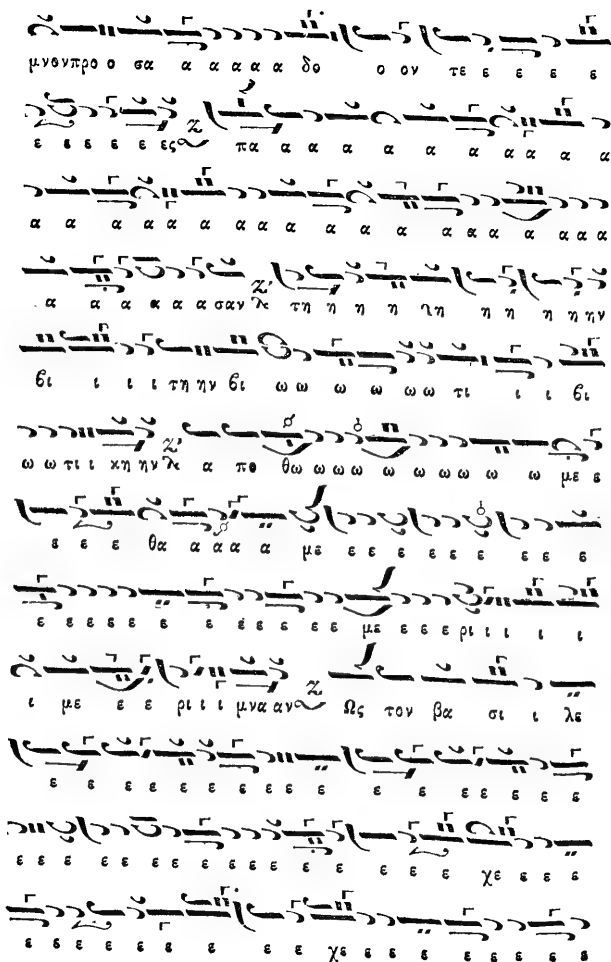 μνονπρο ο σα α α α α α δο ο ον τε ε ε ε ε
ε ε ε ε ε ες πα α α α α α α α α α α α
α α α α α α α α α α α α α α α α α α α
α α α α α α σαν τη η η η η η η η η ην
βι ι ι ι τη ην βι ω ω ω ω ω ω τι ι ι βι
ω ω τι ι κη ην α πο θω ω ω ω ω ω ω ω ω ω με ε
ε ε ε θα α α α α με ε ε ε ε ε ε ε ε ε
ε ε ε ε ε ε ε ε ε ε ε ε με ε ε ε ρι ι ι ι ι
ι με ε ε ρι ι ι μνα αν Ως τον βα σι ι λε
ε ε ε ε ε ε ε ε ε ε ε ε ε ε ε ε ε
ε ε ε ε ε ε ε ε ε ε ε ε ε ε ε ε ε χε ε ε ε
ε ε ε ε ε ε ε ε ε ε χε ε ε ε ε ε ε ε ε